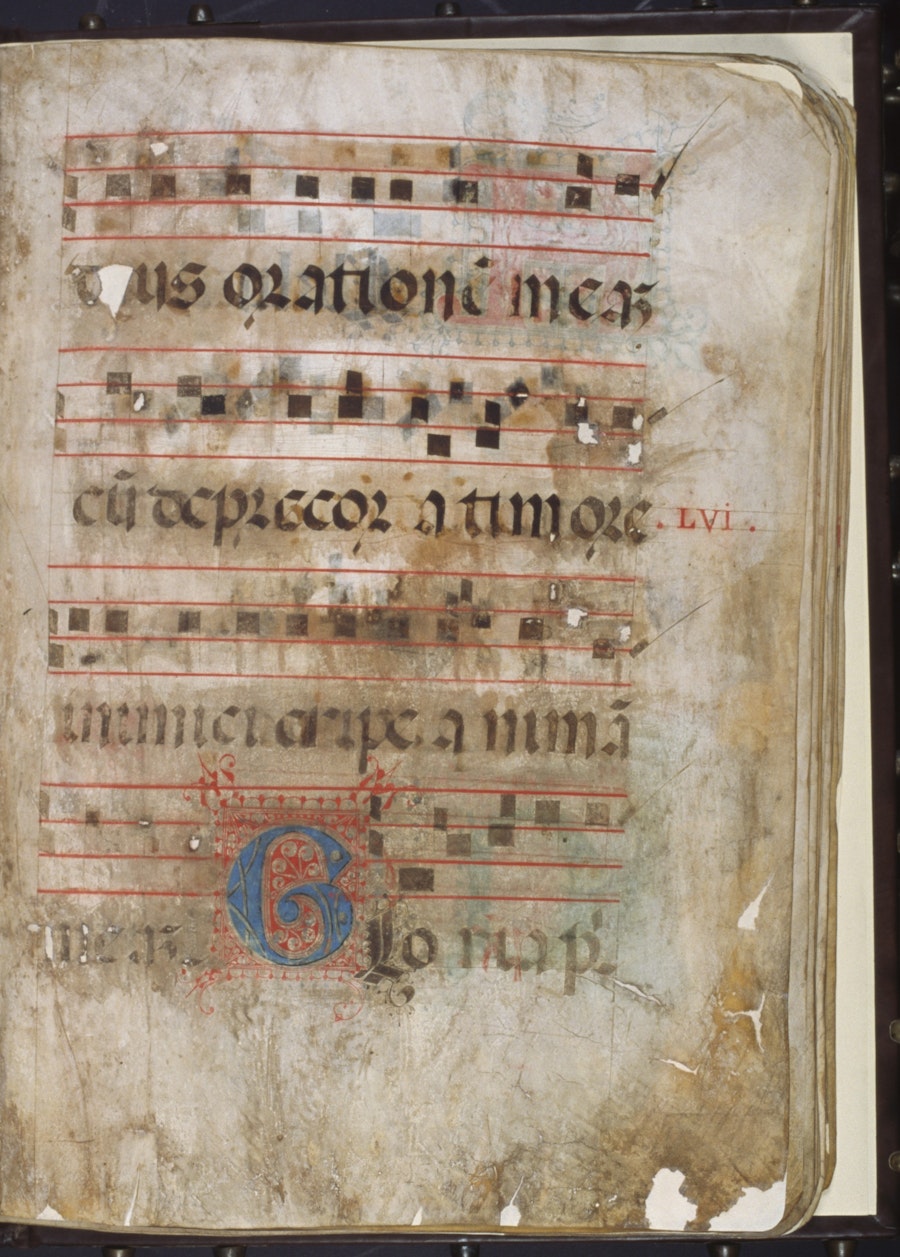 deus orationē meaʒ
cū deprecor a timore . LVI .
inimici eripe animā
meaʒ. Glo ria p̄.